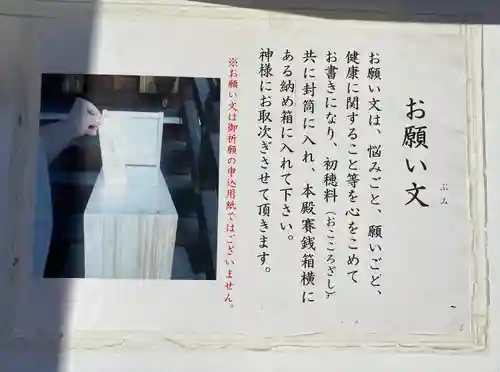 お願い文
ぶん
お願い文は、悩みごと、願いごど、
健康に関すること等を心をこめて
お書きになり、初穂料（おこころざし）
共に封筒に入れ、本殿賽銭箱横に
ある納め箱に入れて下さい。
神様にお取次ぎさせて頂きます。
※お願い文は御祈願の申込用紙ではございません。